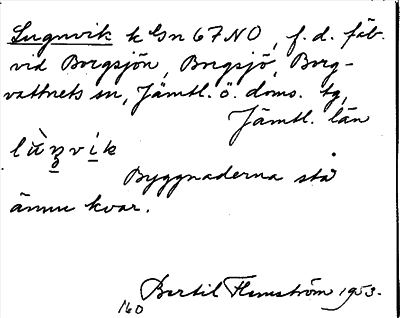 Lugnvik k Gn 67NO, f.d. fäb.
vid Borgsjön, Borgsjö, Borg-
vattnets sn, Jämtl. ö. doms. tg,
Jämtl. län
lùŋvik
Byggnaderna stå
ännu kvar.
Bertil Flemström 1953.
160